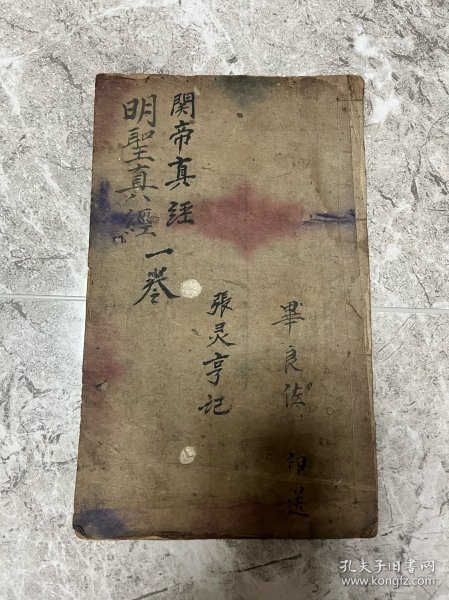 畢良佐 印送
張灵亨記
関帝真経
明聖真經一卷
孔夫子旧书网
www.kongfz.com